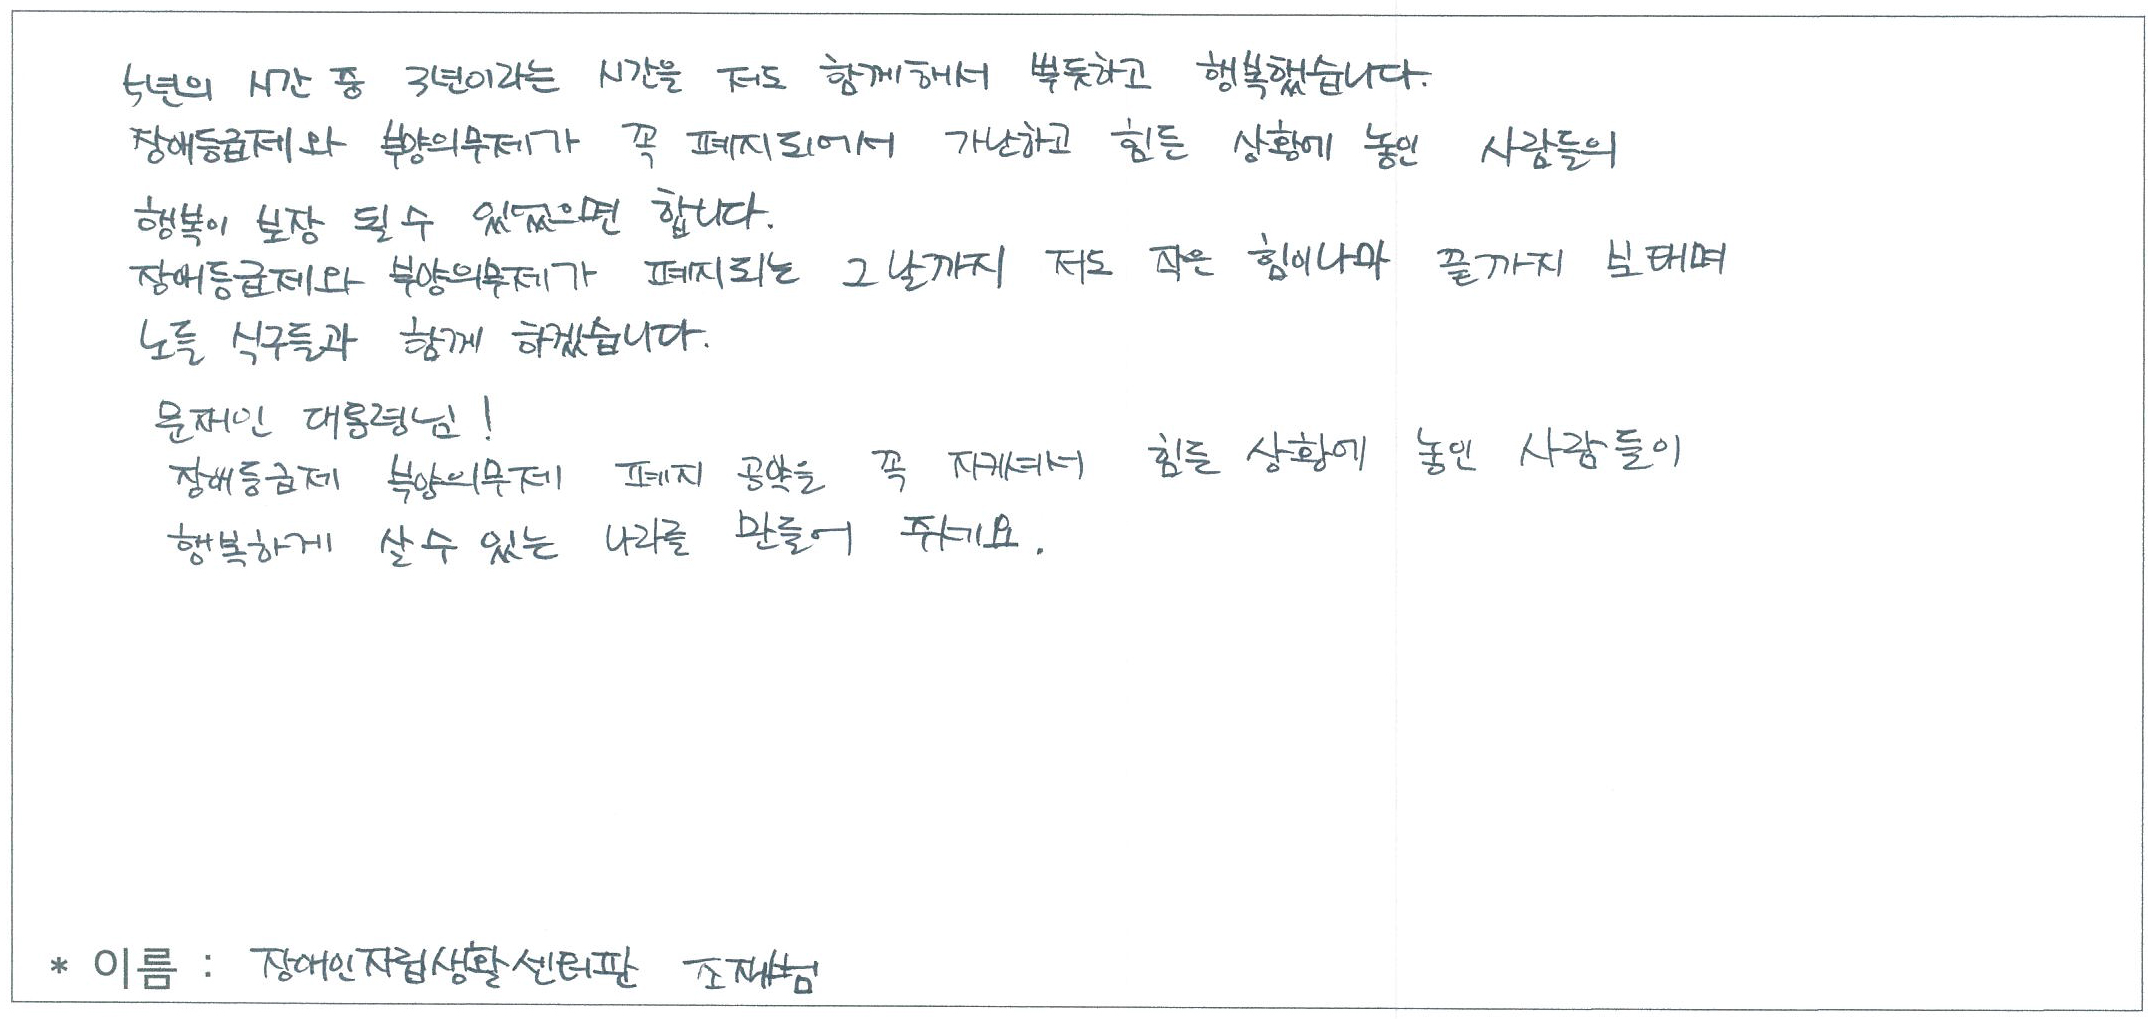 5년의 시간 중 3년이라는 시간을 저도 함께해서 뿌듯하고 행복했습니다.
장애등급제와 부양의무제가 꼭 폐지되어서 가난하고 힘든 상황에 놓인 사람들의
행복이 보장 될 수 있었으면 합니다.
장애등급제와 부양의무제가 폐지되는 그날까지 저도 작은 힘이나마 끝까지 보태며
노들 식구들과 함께 하겠습니다.
문재인 대통령님!
장애등급제 부양의무제 폐지 공약을 꼭 지켜셔서 힘든 상황에 놓인 사람들이
행복하게 살 수 있는 나라를 만들어 주세요.
* 이름 : 장애인자립생활센터판 조재범